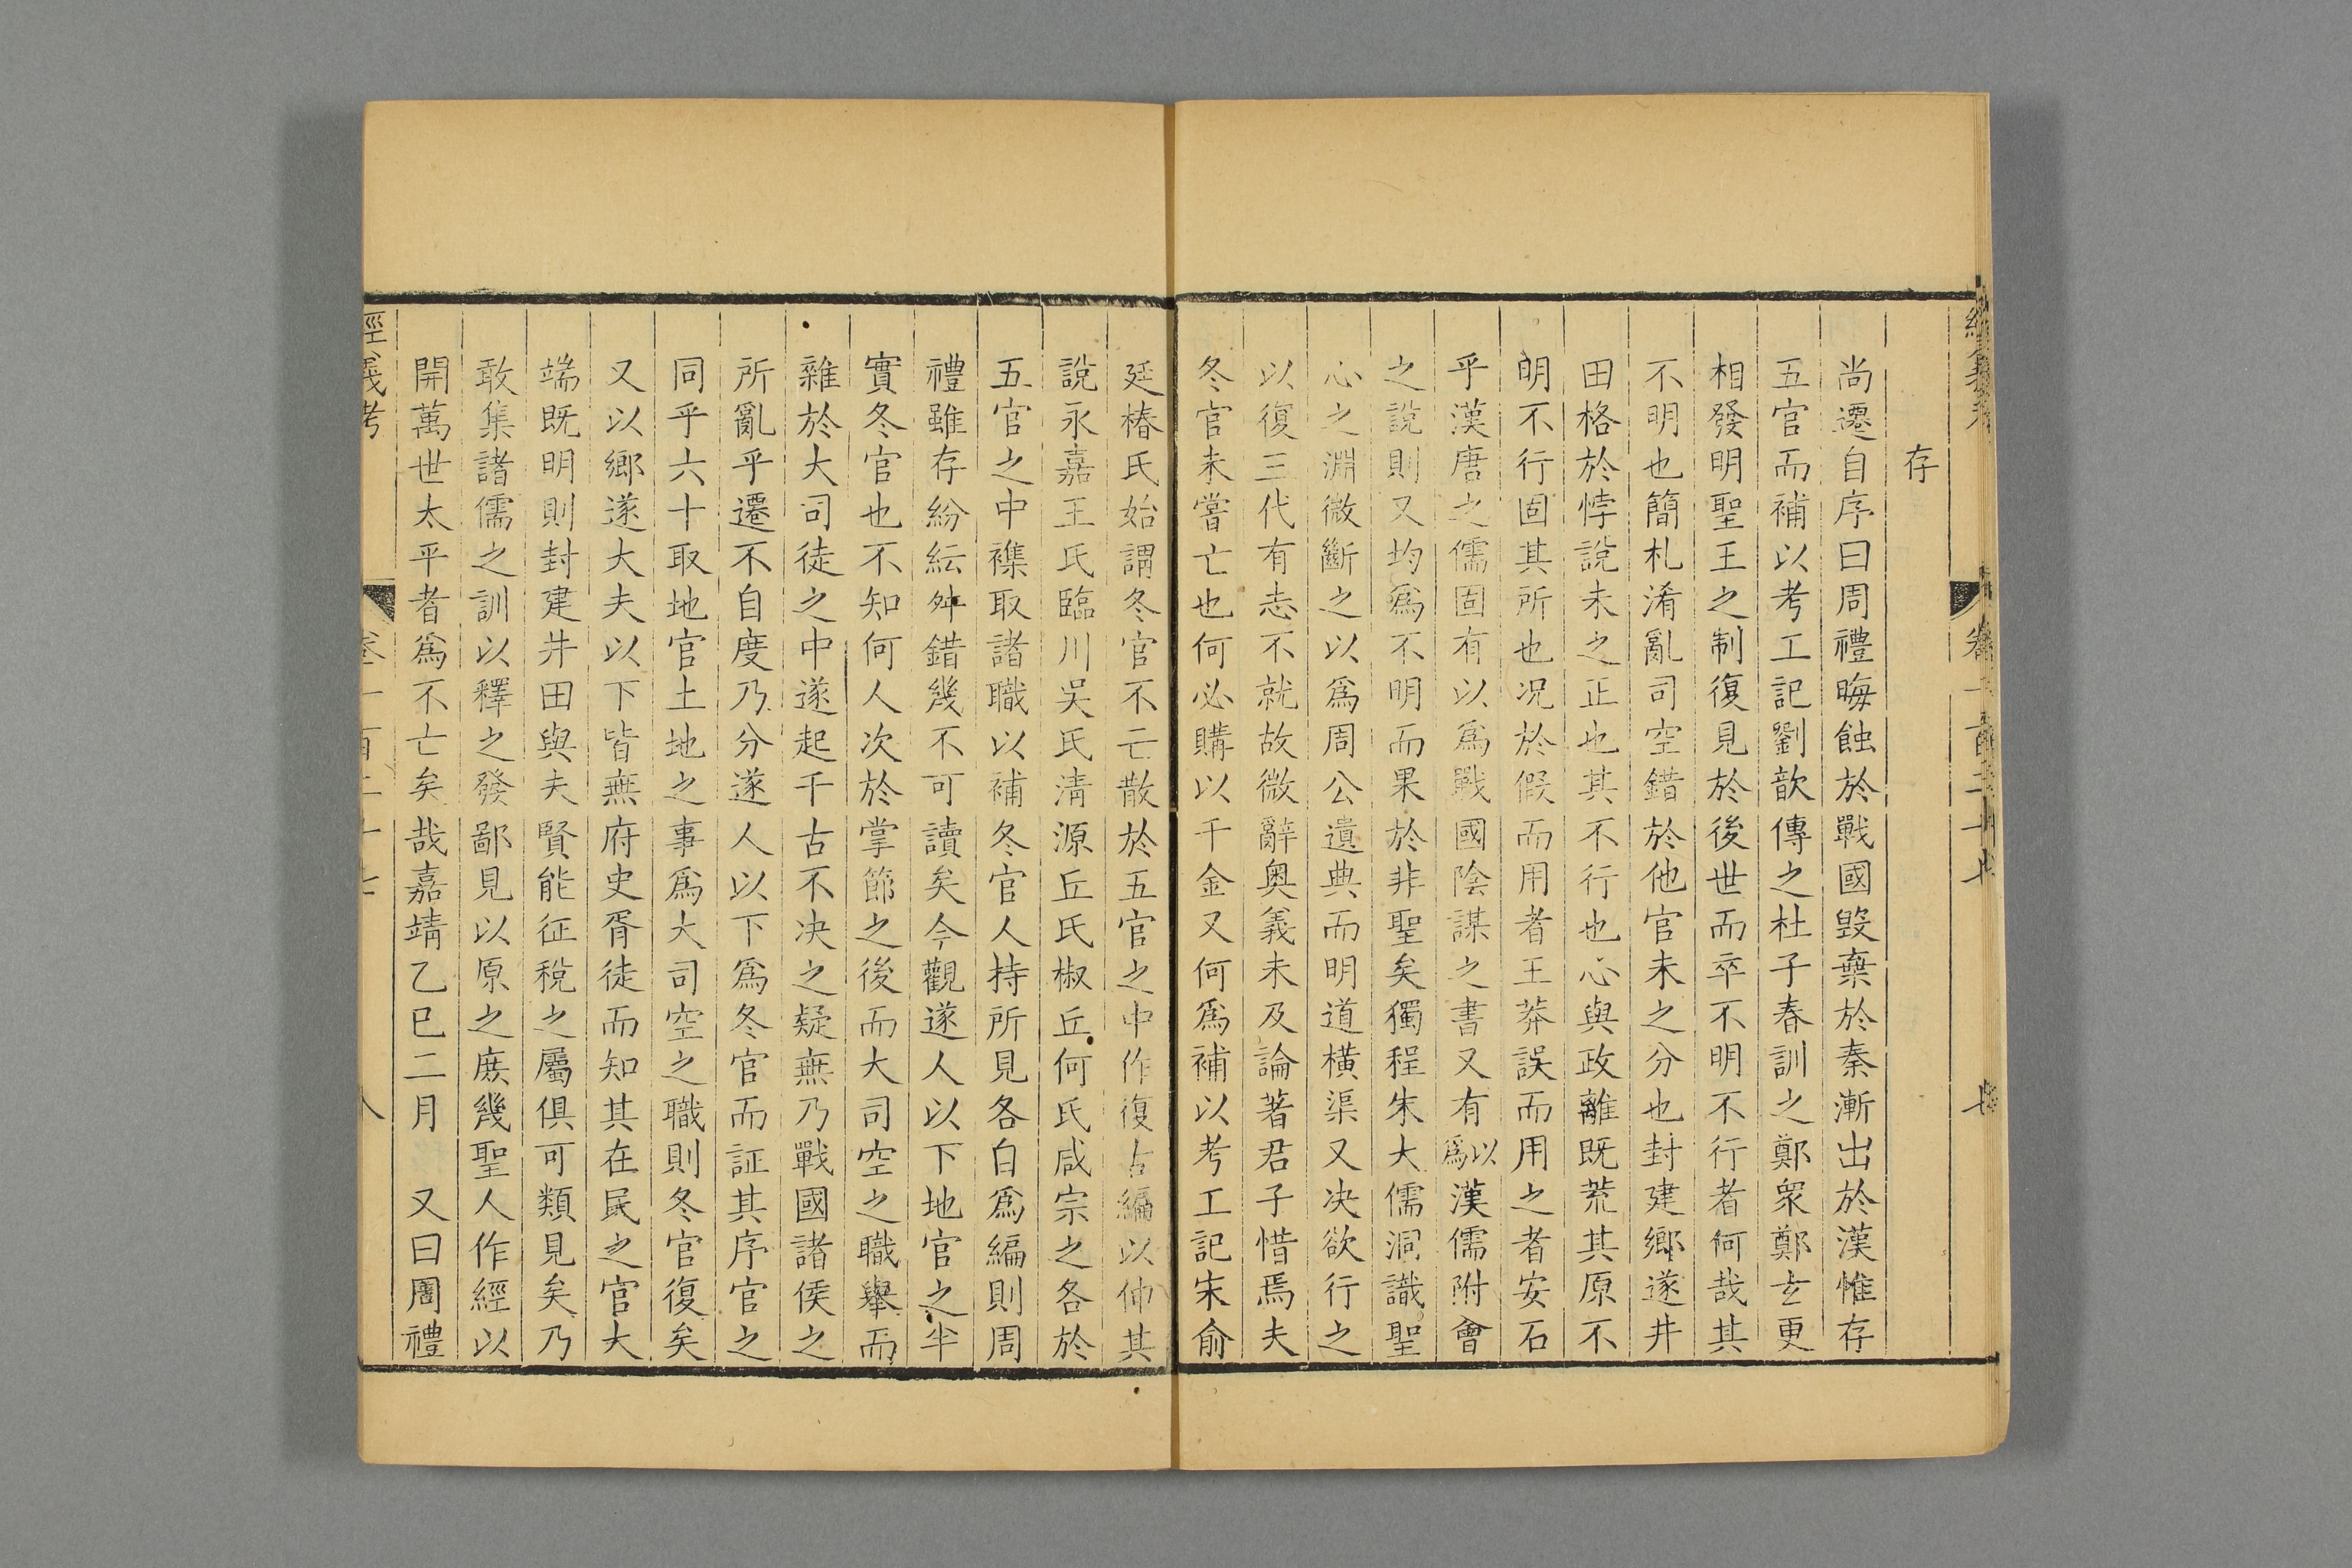 經義考
卷一百二十七
七
存
尚遷自序曰周禮晦蝕於戰國毀棄於秦漸出於漢惟存
五官而補以考工記劉歆傳之杜子春訓之鄭眾鄭玄更
相發明聖王之制復見於後世而卒不明不行者何哉其
不明也簡札淆亂司空錯於他官未之分也封建鄉遂井
田格於悖說未之正也其不行也心與政離既荒其原不
明不行固其所也況於假而用者王莽誤而用之者安石
乎漢唐之儒固有以為戰國陰謀之書又有以為漢儒附會
之說則又均為不明而果於非聖矣獨程朱大儒洞識聖
心之淵微斷之以為周公遺典而明道橫渠又決欲行之
以復三代有志不就故微辭奧義未及論著君子惜焉夫
冬官未嘗亡也何必購以千金又何為補以考工記宋俞
廷椿氏始謂冬官不亡散於五官之中作復古編以伸其
說永嘉王氏臨川吳氏清源丘氏椒丘何氏咸宗之各於
五官之中襍取諸職以補冬官人持所見各自為編則周
禮雖存紛紜舛錯幾不可讀矣今觀遂人以下地官之半
實冬官也不知何人次於掌節之後而大司空之職舉而
雜於大司徒之中遂起千古不決之疑無乃戰國諸侯之
所亂乎遷不自度乃分遂人以下為冬官而証其序官之
同乎六十取地官土地之事為大司空之職則冬官復矣
又以鄉遂大夫以下皆無府史胥徒而知其在民之官大
端既明則封建井田與夫賢能征稅之屬俱可類見矣乃
敢集諸儒之訓以釋之發鄙見以原之庶幾聖人作經以
開萬世太平者為不亡矣哉嘉靖乙巳二月　又曰周禮
經義考
卷一百二十七
八